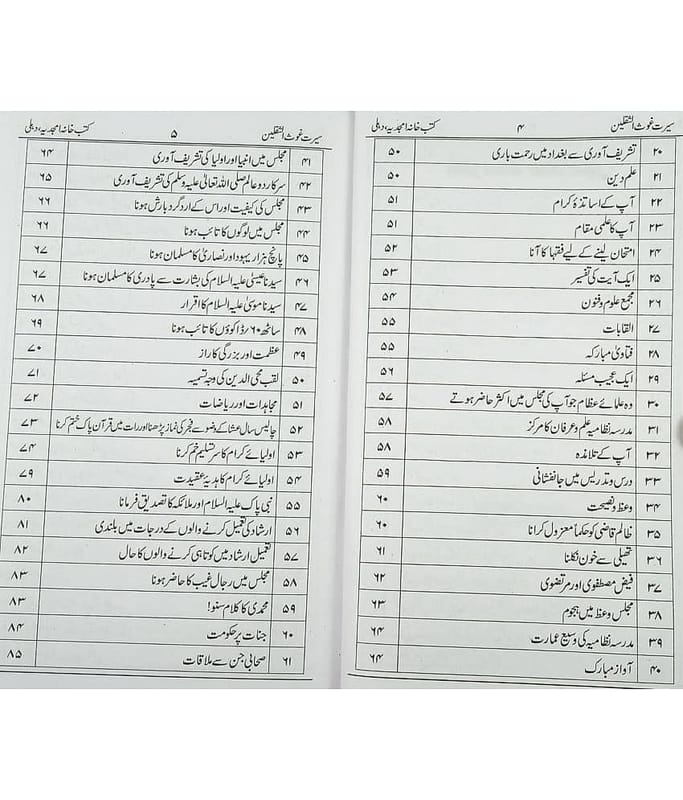 سیرت غوث الثقلین ۴ کتب خانہ امجدیہ، دہلی
۲۰ تشریف آوری سے بغداد میں رحمت باری ۵۰
۲۱ علم دین ۵۰
۲۲ آپ کے اساتذۂ کرام ۵۱
۲۳ آپ کا علمی مقام ۵۱
۲۴ امتحان لینے کے لیے فقہا کا آنا ۵۲
۲۵ ایک آیت کی تفسیر ۵۳
۲۶ مجمع علوم و فنون ۵۴
۲۷ القابات ۵۵
۲۸ فتاویٰ مبارکہ ۵۵
۲۹ ایک عجیب مسئلہ ۵۶
۳۰ وہ علمائے عظام جو آپ کی مجلس میں اکثر حاضر ہوتے ۵۷
۳۱ مدرسہ نظامیہ علم و عرفان کا مرکز ۵۸
۳۲ آپ کے تلامذہ ۵۸
۳۳ درس و تدریس میں جانفشانی ۵۹
۳۴ وعظ و نصیحت ۶۰
۳۵ ظالم قاضی کو حکماً معزول کرانا ۶۰
۳۶ تھیلی سے خون نکلنا ۶۱
۳۷ فیض مصطفوی اور مرتضوی ۶۲
۳۸ مجلس وعظ میں ہجوم ۶۳
۳۹ مدرسہ نظامیہ کی وسیع عمارت ۶۴
۴۰ آواز مبارک ۶۴
سیرت غوث الثقلین ۵ کتب خانہ امجدیہ، دہلی
۴۱ مجلس میں انبیا اور اولیا کی تشریف آوری ۶۴
۴۲ سرکار دو عالم صلی اللہ تعالیٰ علیہ وسلم کی تشریف آوری ۶۵
۴۳ مجلس کی کیفیت اور اس کے ارد گرد بارش ہونا ۶۶
۴۴ مجلس میں لوگوں کا تائب ہونا ۶۶
۴۵ پانچ ہزار یہود اور نصاریٰ کا مسلمان ہونا ۶۷
۴۶ سیدنا عیسیٰ علیہ السلام کی بشارت سے پادری کا مسلمان ہونا ۶۷
۴۷ سیدنا موسیٰ علیہ السلام کا اقرار ۶۸
۴۸ ساٹھ ۶۰ ڈاکوؤں کا تائب ہونا ۶۹
۴۹ عظمت اور بزرگی کا راز ۷۰
۵۰ لقب محی الدین کی وجہ تسمیہ ۷۱
۵۱ مجاہدات اور ریاضات ۷۲
۵۲ چالیس سال عشا کے وضو سے فجر کی نماز پڑھنا اور رات میں قرآن پاک ختم کرنا ۷۳
۵۳ اولیائے کرام کا سر تسلیم خم کرنا ۷۴
۵۴ اولیائے کرام کا ہدیۂ عقیدت ۷۹
۵۵ نبی پاک علیہ السلام اور ملائکہ کا تصدیق فرمانا ۸۰
۵۶ ارشاد کی تعمیل کرنے والوں کے درجات میں بلندی ۸۱
۵۷ تعمیل ارشاد میں کوتاہی کرنے والوں کا حال ۸۲
۵۸ مجلس میں رجال غیب کا حاضر ہونا ۸۳
۵۹ محمدی کا کلام سنو! ۸۳
۶۰ جنات پر حکومت ۸۴
۶۱ صحابی جن سے ملاقات ۸۵